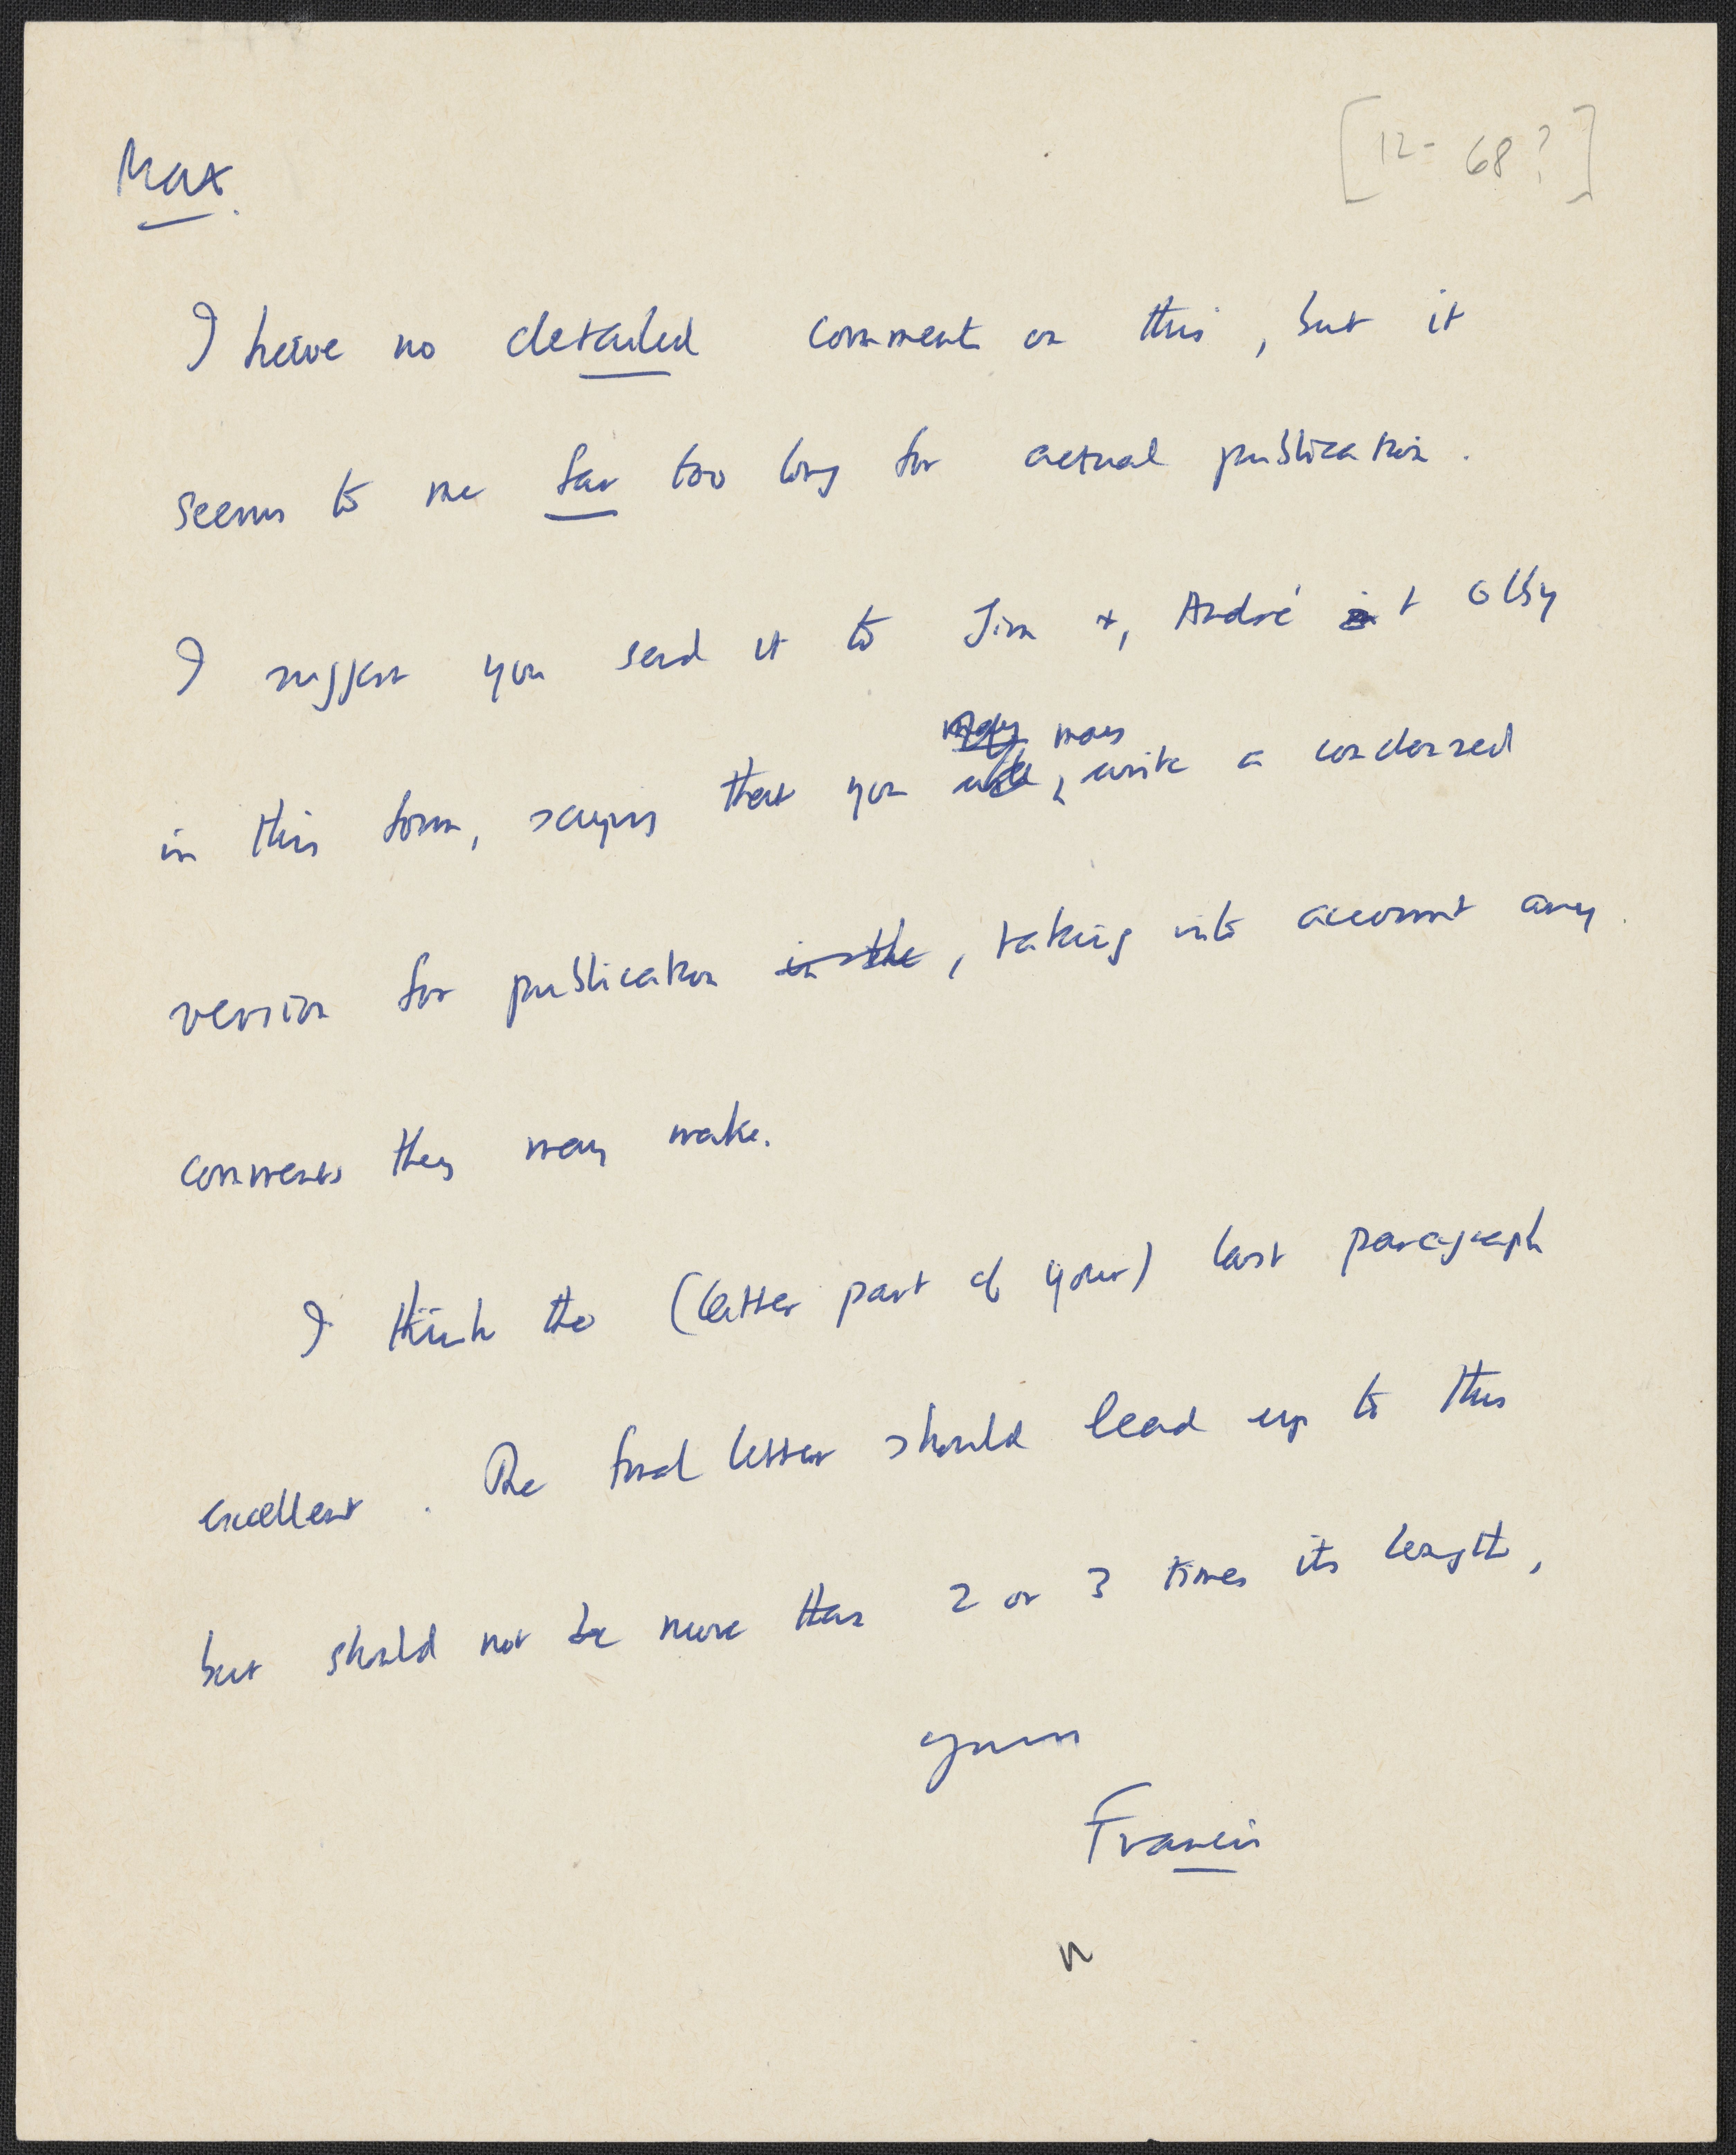 Max.
[12- 68?]
I have no detailed comments on this, but it
seems to me far too long for actual publication.
I suggest you send it to Jim +, André + Olby
in this form, saying that you may write a condensed
version for publication in the, taking into account any
comments they may make.
I think the (latter part of your) last paragraph
excellent. The final letter should lead up to this
but should not be more than 2 or 3 times its length,
yours
Francis